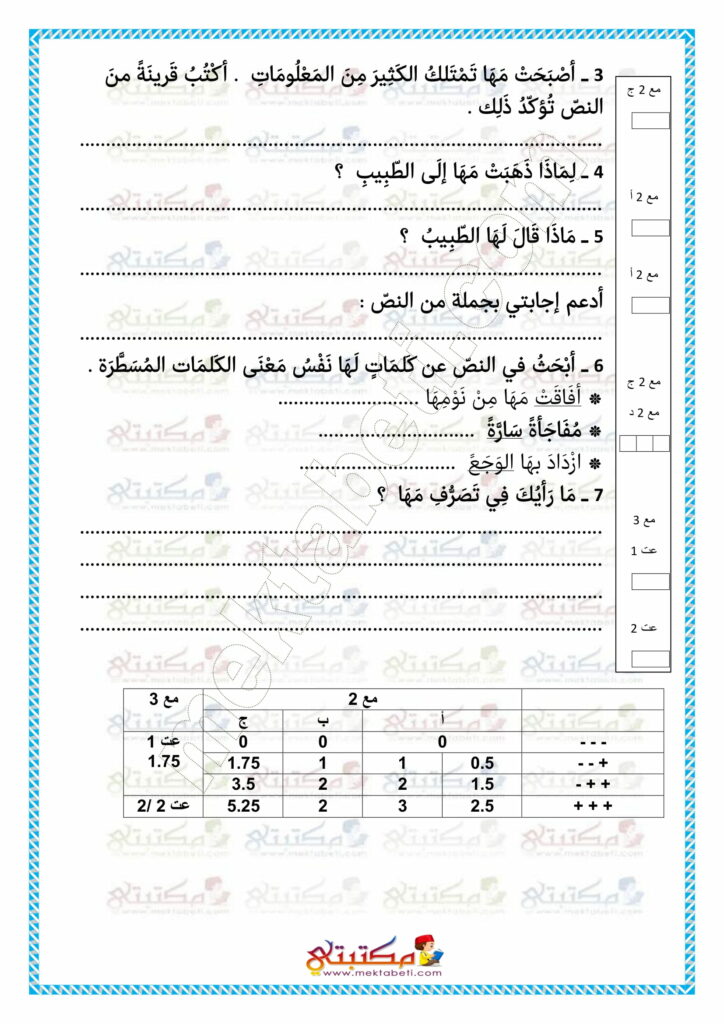 3 ـ أصْبَحَتْ مَهَا تَمْتَلكُ الكَثِيرَ مِنَ المَعْلُومَاتِ . أكْتُبُ قَرينَةً منَ
النصّ تُؤكّدُ ذَلِك .
مع 2 ج
................................................................................
4 ـ لِمَاذَا ذَهَبَتْ مَهَا إلَى الطّبِيبِ ؟
مع 2 أ
................................................................................
5 ـ مَاذَا قَالَ لَهَا الطّبِيبُ ؟
مع 2 أ
................................................................................
أدعم إجابتي بجملة من النصّ :
................................................................................
6 ـ أبْحَثُ في النصّ عن كَلمَاتٍ لَهَا نَفْسُ مَعْنَى الكَلمَات المُسَطَّرَة .
مع 2 ج
* أفَاقَتْ مَهَا مِنْ نَوْمِهَا ...........................
مع 2 د
* مُفَاجَأةً سَارَّةً ..............................
* ازْدَادَ بهَا الوَجَعً ..............................
7 ـ مَا رَأيُكَ فِي تَصَرُّفِ مَهَا ؟
مع 3
................................................................................
عت 1
................................................................................
................................................................................
عت 2
................................................................................
مع 2 مع 3
أ ب ج
- - - 0 0 0 عت 1
+ - - 0.5 1 1 1.75 1.75
+ + - 1.5 2 2 3.5
+ + + 2.5 3 2 5.25 عت 2 /2
مكتبتي
www.mektabeti.com
mektabeti.com